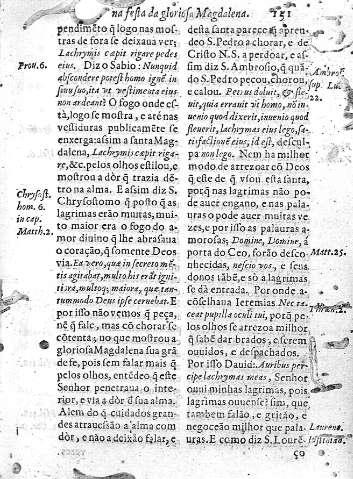 na festa da gloriosa Magdalena. 151
pendimẽto q̃ logo nas mos
tras de fora se deixaua ver;
Lachrymis capit rigare pedes
eius. Diz o Sabio: Nunquid
Prou.6.
abscondere potest homo ignẽ in
sinu suo, ita vt vestimenta eius
non ardeant? O fogo onde es
tà, logo se mostra, e até nas
vestiduras publicamẽte se
enxerga: assim a santa Mag
dalena, Lachrymis capit riga
re, &c. pelos olhos estilou, e
mostrou a dòr q̃ trazia dẽ
tro na alma. E assim diz S.
Chrysostomo q̃ posto q̃ as
Chrysost.
hom. 6.
in cap.
Matth.2.
lagrimas erão muitas, mui
to maior era o fogo do a
mor diuino q̃ lhe abrasaua
o coração, q̃ somente Deos
via. Ea vero, quæ in secreto mẽ
tis agitabat, multo his erãt igni
tiora, multoq; maiora, quæ tan
tummodo Deus ipse cernebat. E
por isso não vemos q̃ peça,
nẽ q̃ fale, mas cõ chorar se
cõtenta; no que mostrou a
gloriosa Magdalena sua grã
de fe, pois sem falar mais q̃
pelos olhos, entẽdeo q̃ este
Senhor penetraua o inte
rior, e via a dòr d̃ sua alma.
Alem do q̃ cuidados gran
des atrauessão a'alma com
dòr, e não a deixão falar, e
desta santa parece q̃ apren
deo S. Pedro a chorar, e de
Cristo N. S. a perdoar, e as
sim diz S. Ambrosio, q̃ quã
do S. Pedro pecou, chorou,
Ambros.
sup. Lu.
22.
e calou. Petrus doluit, & fle
uit, quia errauit vt homo, nõ in
uenio quod dixerit, inuenio quod
fleuerit, lachrymas eius lego, sa
tisfactionẽ eius, id est, descul
pa non lego. Nem ha milhor
modo de arrezoar cõ Deos
q̃ este de q̃ vsou esta santa,
porq̃ nas lagrimas não po
de auer engano, e nas pala
uras o pode auer muitas ve
zes, e por isso as palauras a
morosas; Domine, Domine, á
Matt.25.
porta do Ceo, forão desco
nhecidas, nescio vos, e seus
donos tãbẽ, e só a lagrimas
se dà entrada. Por onde a
cõselhaua Ieremias. Nec ta
ceat pupilla oculi tui, porq̃ pe
Thren.2.
los olhos se arrezoa milhor
q̃ sabẽ dar brados, e serem
ouuidos, e despachados.
Por isso Dauid: Auribus per
cipe lachrymas meas, Senhor
ouui minhas lagrimas, pois
lagrimas ouuense? sim, que
tambem falão, e gritão, e
negoceão milhor que pala
uras. E como diz S. Lourẽ
Laurenc.
ço